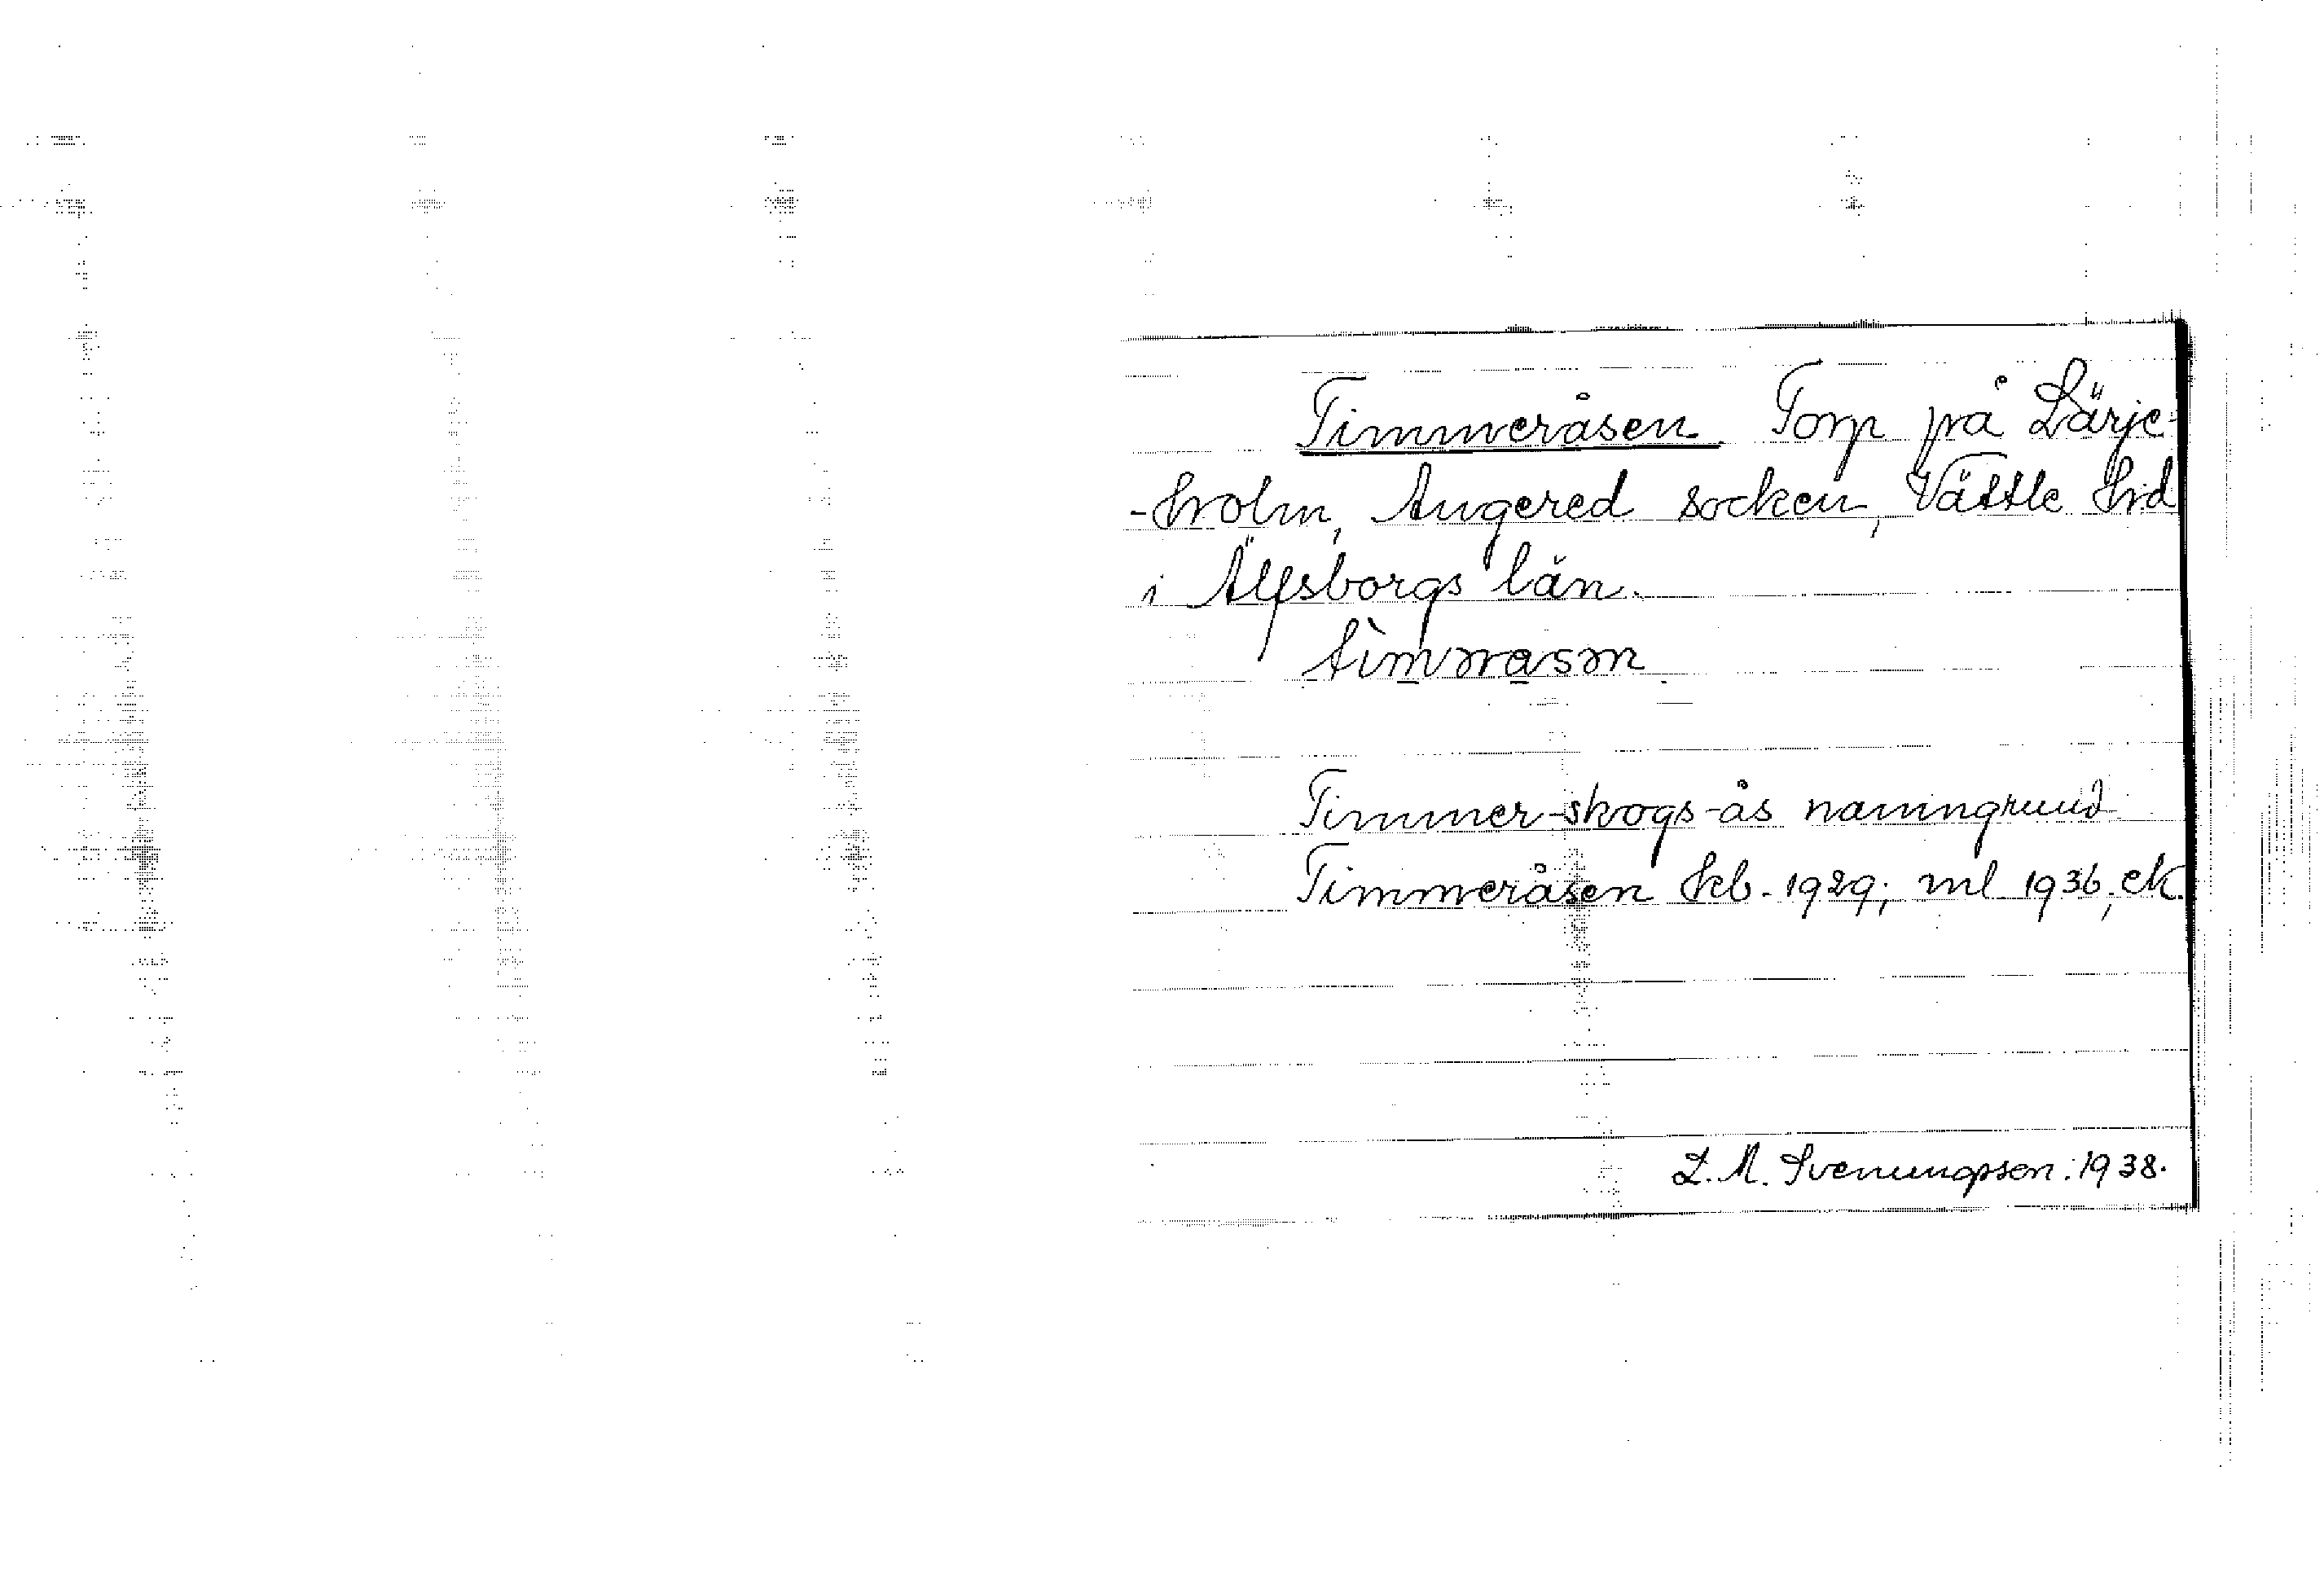 Timmeråsen. Torp på Lärje-
-holm, Angered socken, Vättle hd
i Älfsborgs län.
Timmer-skogs-ås namngrund
Timmeråsen hfb. 1929; ml 1936, ek.
L. M. Svenungsson. 1938.